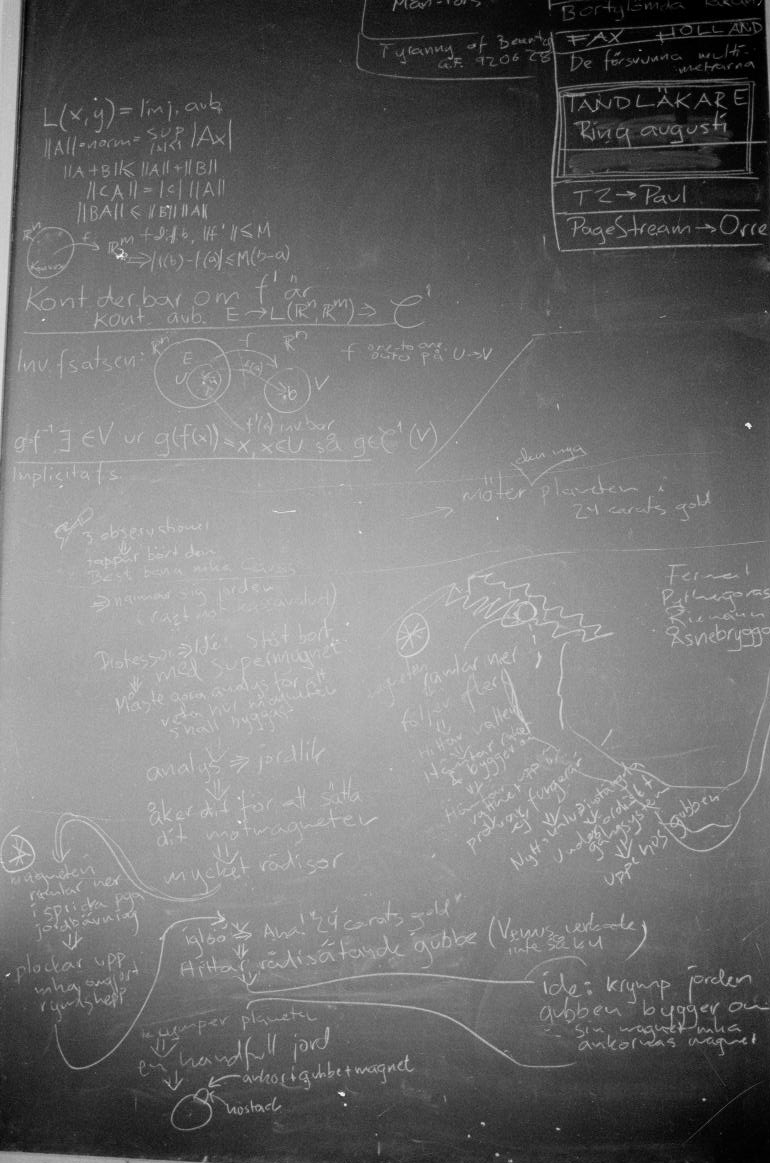 Tyranny of Beauty
a.F. 920628
FAX HOLLAND
De försvunna multi-
metrarna
TANDLÄKARE
Ring augusti
TZ → Paul
PageStream → Orre
L(x,y) = linj. avb.
||A|| = norm = sup |Ax|
|x|≤1
||A+B|| ≤ ||A||+||B||
||cA|| = |c| ||A||
||BA|| ≤ ||B|| ||A||
Rⁿ
f
Konvex
Rᵐ
f diffb, ||f'|| ≤ M
⇒ |f(b)-f(a)| ≤ M(b-a)
Kont. derbar om f' är
kont. avb. E → L(Rⁿ, Rᵐ) ⇒ C'
Inv. fsatsen:
Rⁿ
f
Rⁿ
E
U
b
V
f one-to-one
onto på U→V
f'(a) invbar
g=f⁻¹ ∃ ∈V ur g(f(x)) = x, x∈U så g∈C'(V)
Implicitafs.
den nya
→ möter planeten i
24 carats gold
3 observationer
⇓
tappar bort den
Best bana mha Gauss
⇒ närmar sig jorden
Professor ⇒ Idé: Stöt bort
med supermagnet
⇓
Måste göra analys för att
veta hur
skall byggas
⇓
analys ⇒ jordlik
⇓
åker dit för att sätta
dit motmagneter
⇓
mycket rädisor
Fermat
Pythagoras
Riemann
Åsnebryggo
magneten
ramlar ner
följer efter
⇓
Hittar vatten
⇓
Hämtar
& bygger
⇓
vattnet upp
fungerar
ej
⇓
Underjordiskt
gångsystem
⇓
uppe hos gubben
magneten
ramlar ner
i spricka pga
jordbävning
⇓
plockar upp
mha omgjort
rymdskepp
⇓
igloo ⇒ Ana! "24 carats gold"
⇓
Hittar rädisätande gubbe (Venus verkade
inte så kul)
⇓
idé: krymp jorden
gubben bygger om
sin magnet mha
ankornas magnet
krymper planeten
⇓
en handfull jord
⇓
ankor+gubbe+magnet
höstack